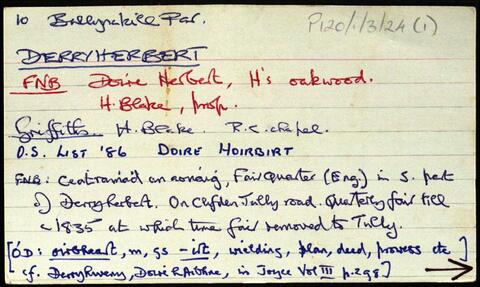 10 Ballynakill Par. P120/1/3/24 (1)
DERRYHERBERT
FNB Doire Herbert, H's oakwood.
H. Blake, prop.
Griffiths H. Blake. R.C. chapel.
O.S. LIST '86 DOIRE HOIRBIRT
FNB: Ceathramadh an aonaig, Fair Quarter (Eng.) in S. part
of Derryherbert. On Clifden Tully road. Quarterly fair till
c 1835 at which time fair removed to Tully.
[Ó.D: oirbheart, m, gs -irt, wielding, plan, deed, prowess etc ]
cf. Derryhiveny, in Joyce Vol III p.298]